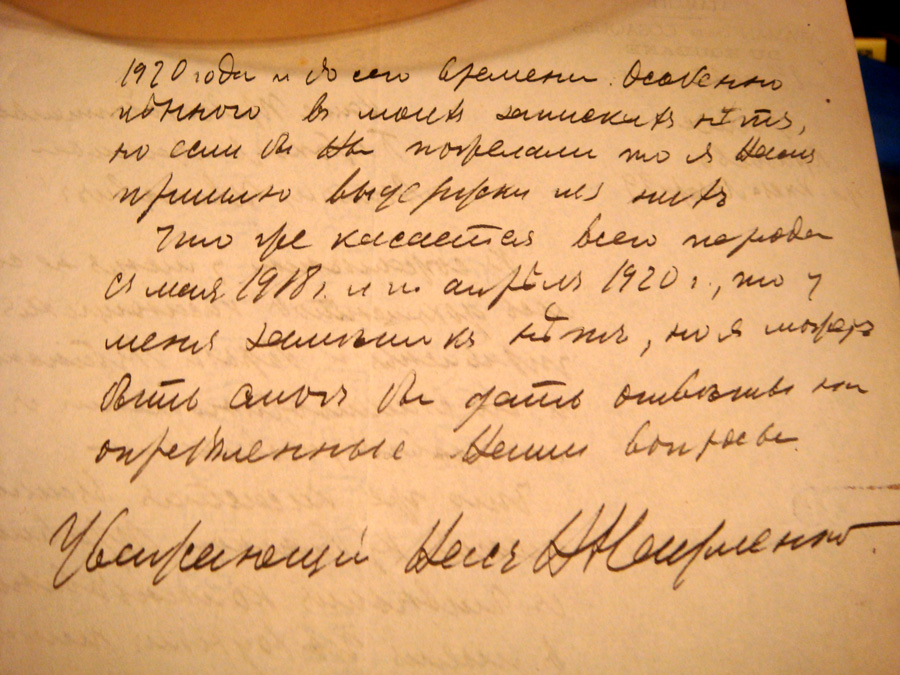 1920 года и до сего времени. Особенно
цѣннаго въ моихъ запискахъ нѣтъ,
но если бы Вы пожелали то я Вамъ
пришлю выдержки изъ нихъ
Что же касается всего періода
съ мая 1918 г. и по апрѣль 1920 г., то у
меня замѣтокъ нѣтъ, но я можетъ
быть смогъ бы дать отвѣты на
опредѣленные Ваши вопросы
Уважающій Васъ